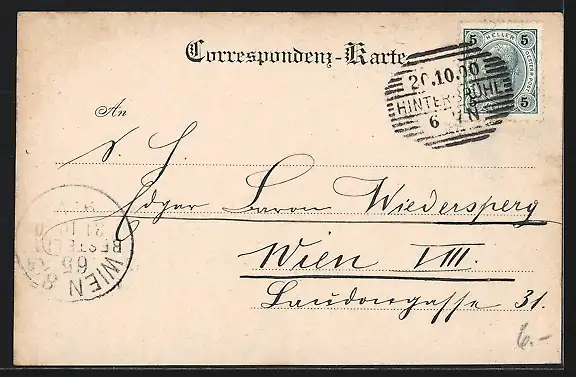 Correspondenz-Karte
5 HELLER 5
5 5
20.10.00
HINTERBRÜHL
6 N
An
S. H.
Edgar Baron Wiedersperg
Wien VIII.
Laudongasse 31.
WIEN 8
65
BESTELLT
21.10
6.-